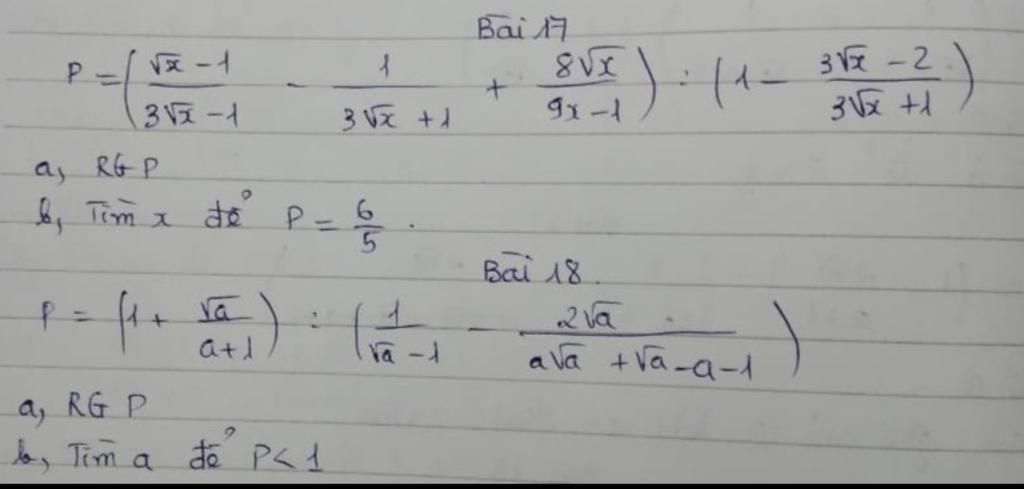 Bài 17
P = ( (√x - 1)/(3√x - 1) - 1/(3√x + 1) + 8√x/(9x - 1) ) : ( 1 - (3√x - 2)/(3√x + 1) )
a, RG P
b, Tìm x để P = 6/5 .
Bài 18.
P = ( 1 + √a/(a+1) ) : ( 1/(√a - 1) - 2√a/(a√a + √a - a - 1) )
a, RG P
b, Tìm a để P < 1